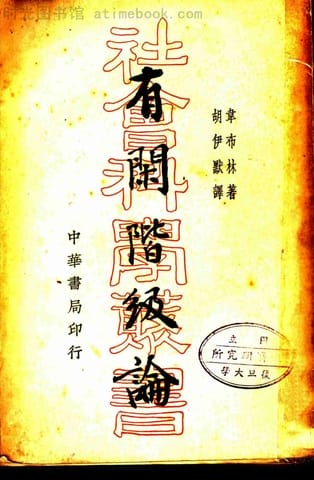 时光图书馆 atimebook.com
社會科學叢書
有閑階級論
韋布林著
胡伊默譯
中華書局印行
國立
研究所
復旦大學